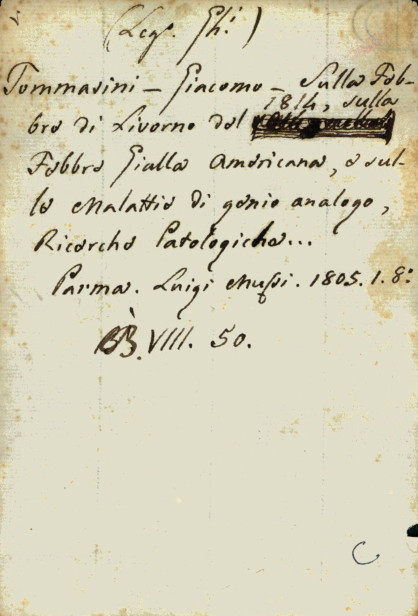 (Leg. Ghi)
Tommasini – Giacomo – Sulla Feb-
bre di Livorno del 1814, sulla
Febbre Gialla Americana, e sul-
le Malattie di genio analogo,
Ricerche Patologiche...
Parma. Luigi Mussi. 1805. 1. 8:
BB. VIII. 50.
C